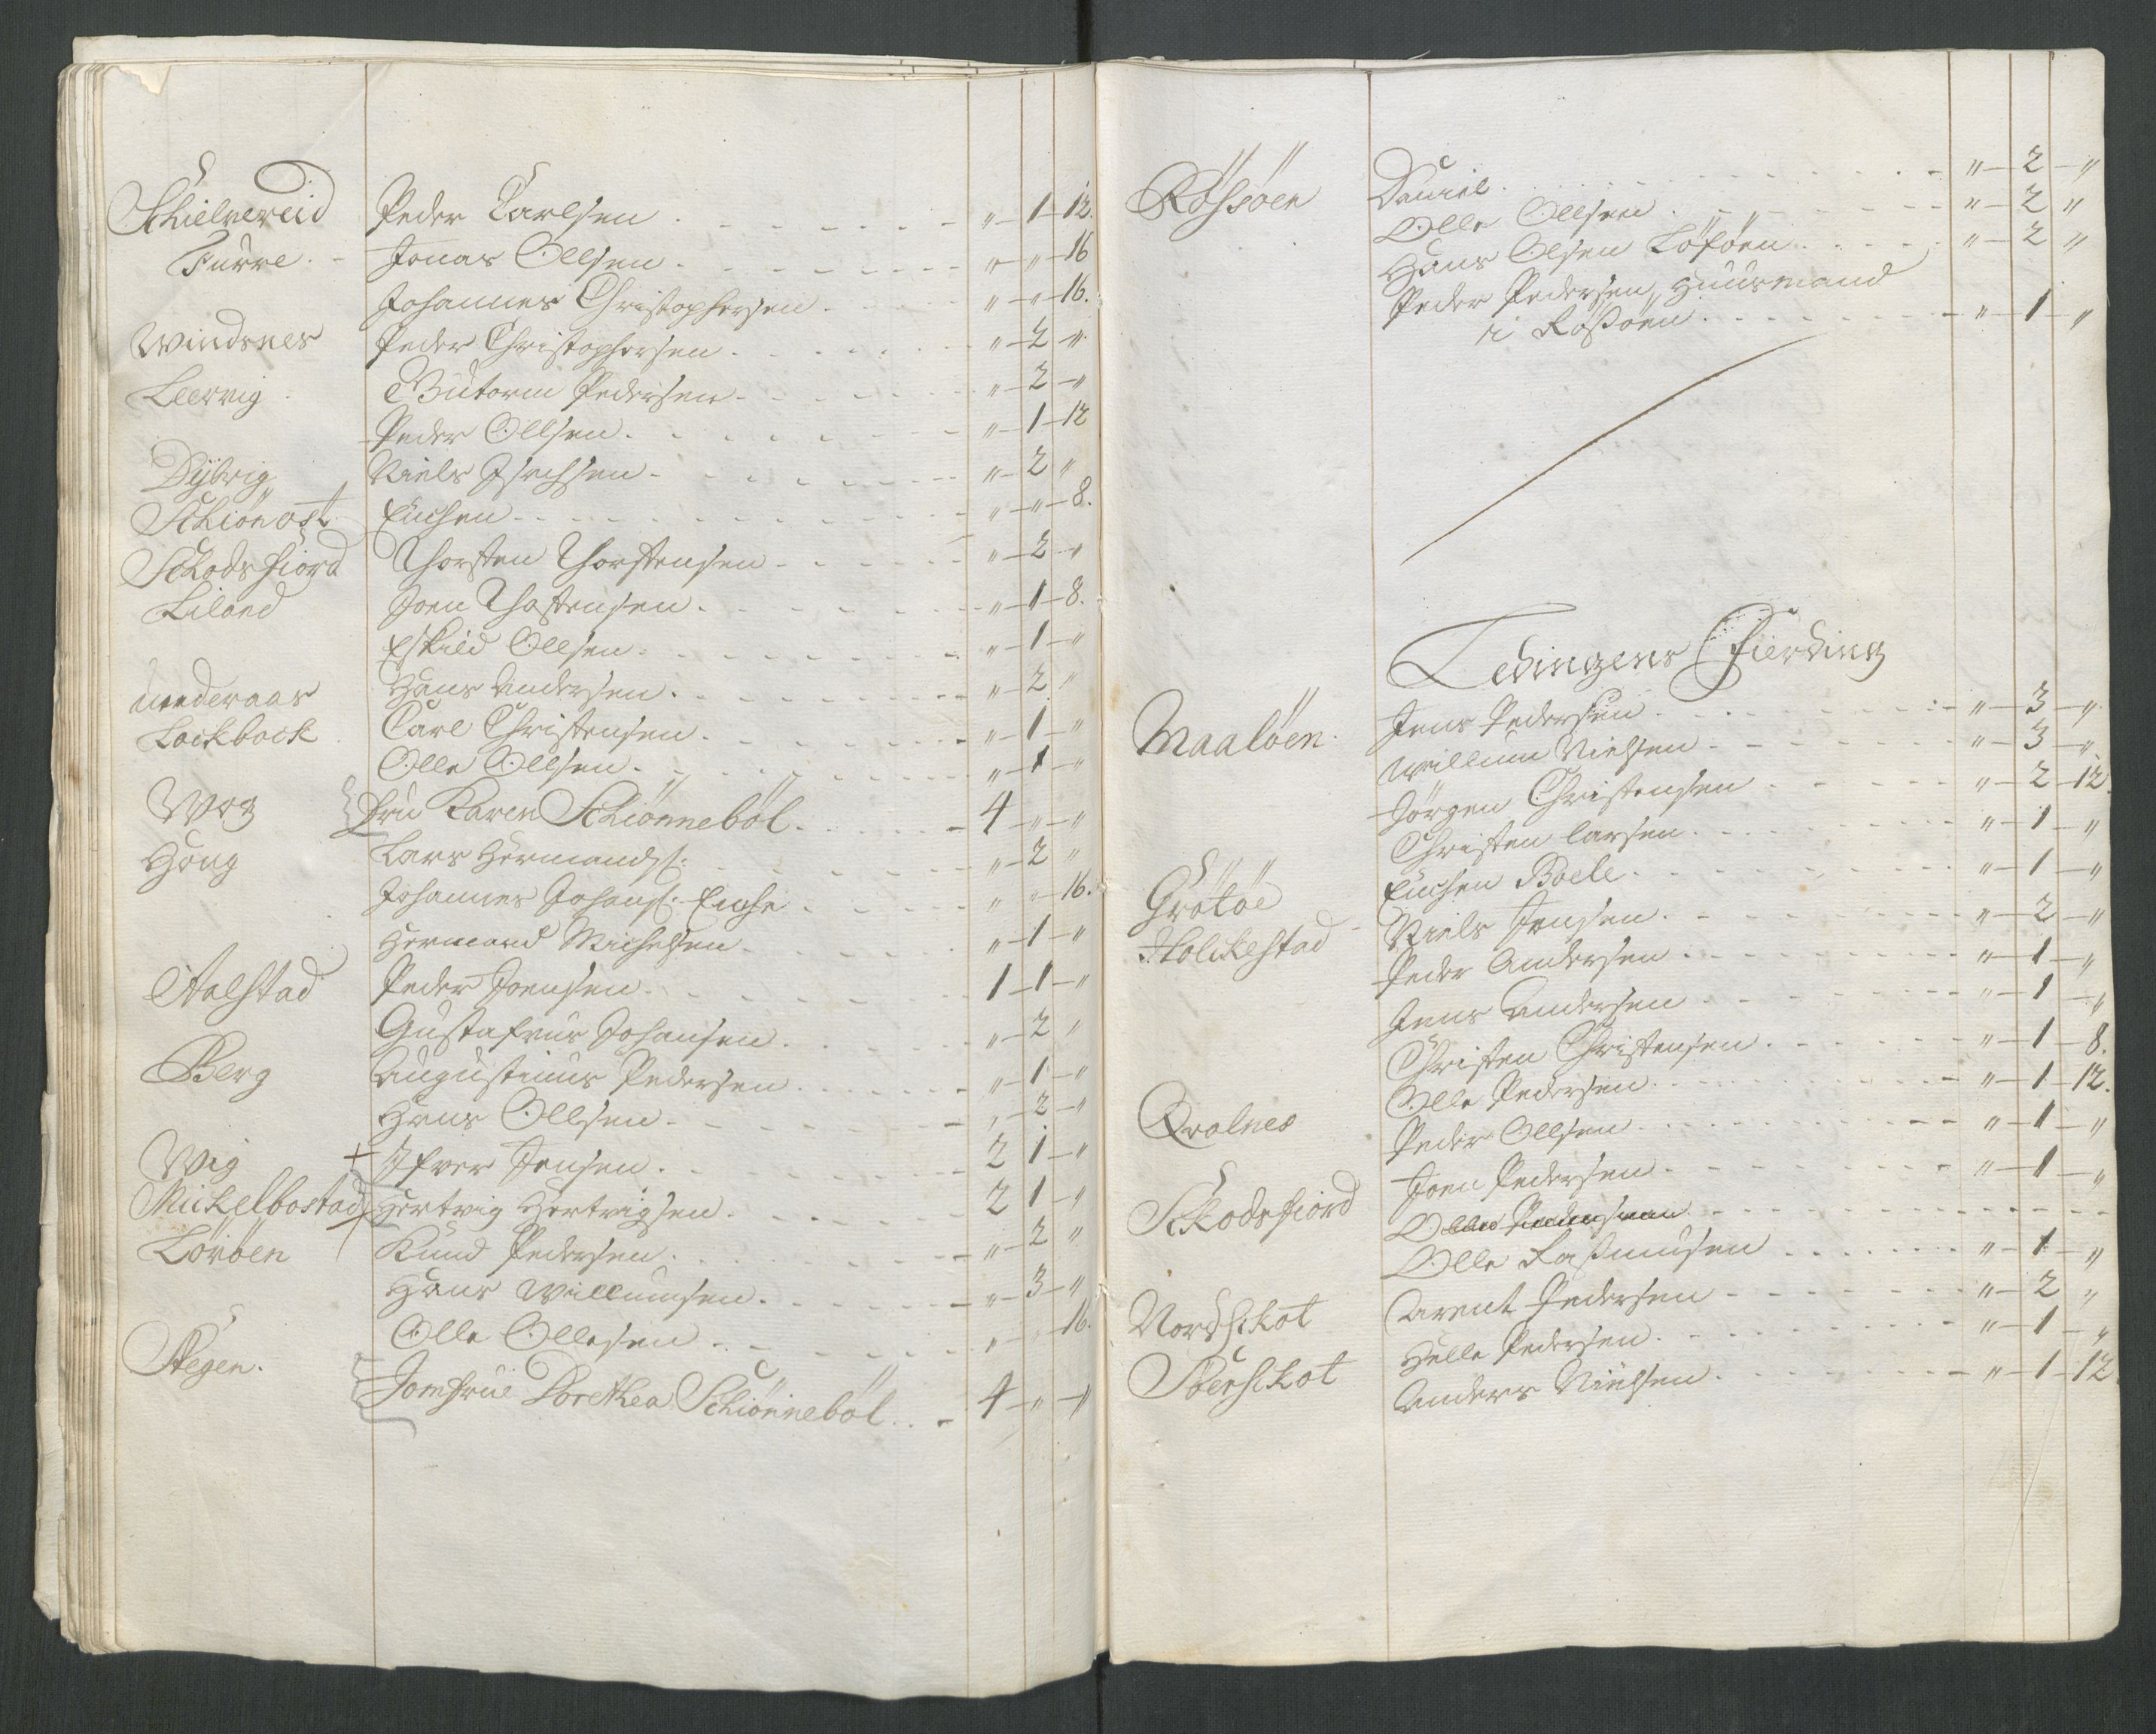 Schielvereid Peder Carlsen . „ 1 12.
Furre. Jonas Ollsen . „ „ 16
Johannes Christophersen . „ „ 16.
Windsnes Peder Christophersen . „ 2 „
Leervig Gutorm Pedersen . „ 2 „
Peder Ollsen . „ 1 12
Dybvig Niels „ 2 „
Schionast Enchen „ „ 8.
Schodsfiord Thorsten Thorstensen „ 2 „
Liland Joen Thostensen . „ 1 8.
Eskild Ollsen . „ 1 „
Nederaas Hans Andersen . „ 2 „
Lockbock Carl Christensen . „ 1 „
Olle Ollsen . „ 1 „
Wog Fru Karen Schiönnebøl . 4 „ „
Houg Lars Hermands: „ 2 „
Johannes Johans: Enche . „ „ 16.
Hermand Michelsen . „ 1 „
Aalstad Peder Joensen . 1 1 „
Gustafvus Johansen . „ 2 „
Berg Augustinus Pedersen . „ 1 „
Hans Ollsen . „ 2 „
Wig + Ifver Jensen . 2 1 „
Mickelbostad Hertvig Hertvigsen . 2 1 „
Löröen Knud Pedersen . „ 2 „
Hans Willumsen . „ 3 „
Olle Ollesen „ „ 16.
Stegen. Jomfrue Dorethea Schiönnebøl . 4 „ „
Røssøen Daniel . „ 2 „
Olle Ollsen . „ 2 „
Hans Olsen Löföen . „ 2 „
Peder Pedersen, Huusmand
i Røssøen . „ 1 „
Ledingens Fierding
Maaløen. Jens Pedersen . „ 3 „
Willum Nielsen . „ 3 „
Jørgen Christensen . „ 2 12.
Christen Larsen . „ 1 „
Grøtøe Enchen Boele . „ 1 „
Holckestad Niels Jensen . „ 2 „
Peder Andersen . „ 1 „
Jens Andersen „ 1 „
Christen Christensen . „ 1 8.
Olle Pedersen . „ 1 12.
Qvalnes Peder Ollsen . „ 1 „
Joen Pedersen . „ 1 „
Schodsfiord Olle
Olle Rasmusen . „ 1 „
Nordschot Arent Pedersen „ 2 „
Helle Pedersen . „ 1 „
Sörschot Anders Nielsen . „ 1 12.